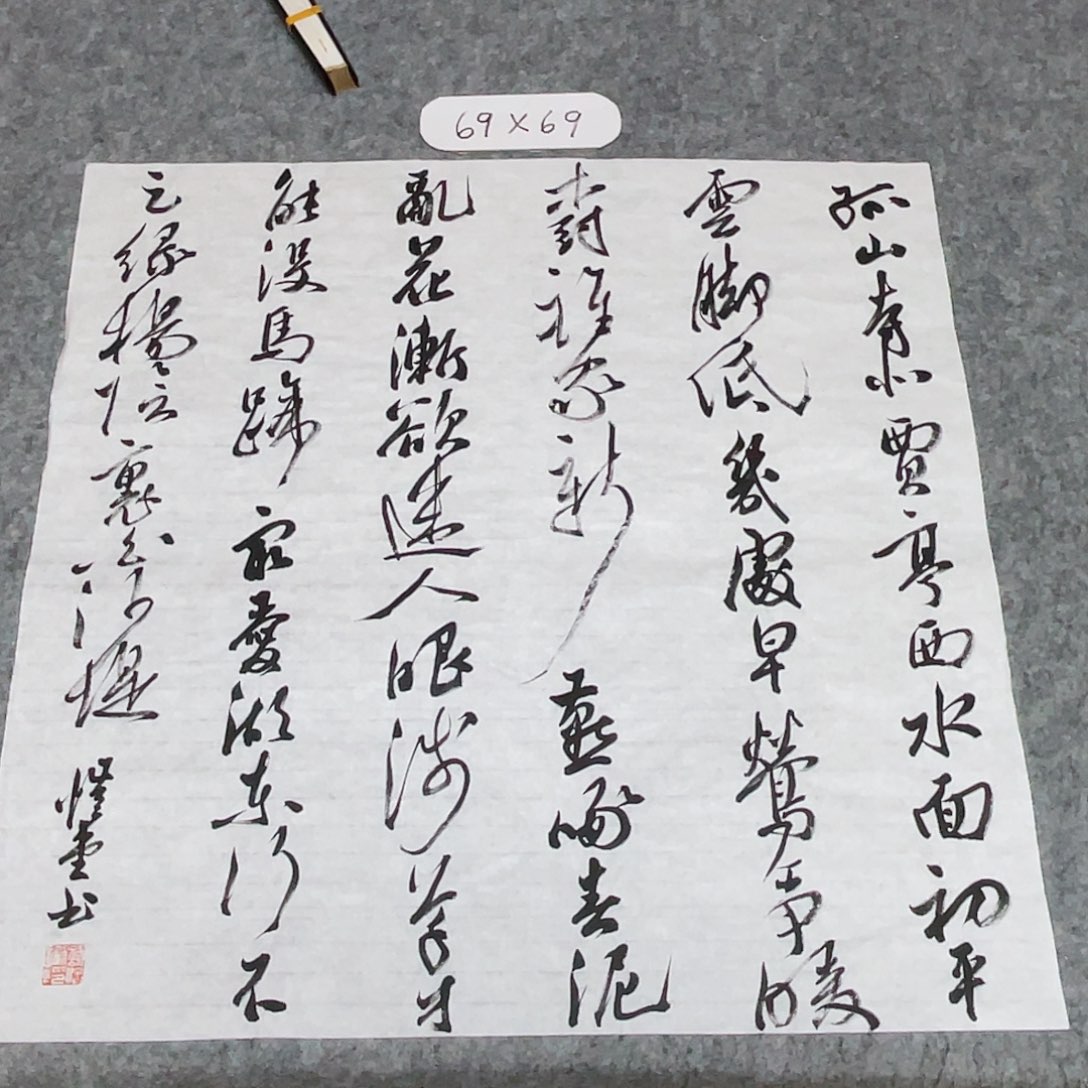 69×69
孤山寺北賈亭西水面初平
雲脚低幾處早鶯爭暖
樹誰家新燕啄春泥
亂花漸欲迷人眼淺草才
能没馬蹄最愛湖東行不
足緑楊陰裏白沙堤 堂书